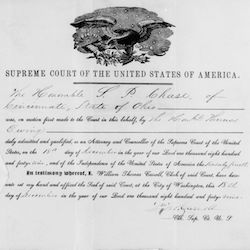 SUPREME COURT OF THE UNITED STATES OF AMERICA.
The Honorable S. P. Chase, of
Cincinnati, State of Ohio
was, on motion first made to the Court in this behalf, by the Honble Thomas
Ewing
duly admitted and qualified, as an Attorney and Counsellor of the Supreme Court of the United
States, on the day of December in the year of our Lord one thousand eight hundred
and forty , and of the Independence of the United States of America the
In testimony whereof, I, William Thomas Carroll, Clerk of said Court, have hereunto
set my hand and affixed the Seal of said Court, at the City of Washington, this
day of December in the year of our Lord one thousand eight hundred and forty
Clk. Sup. Co. U. S